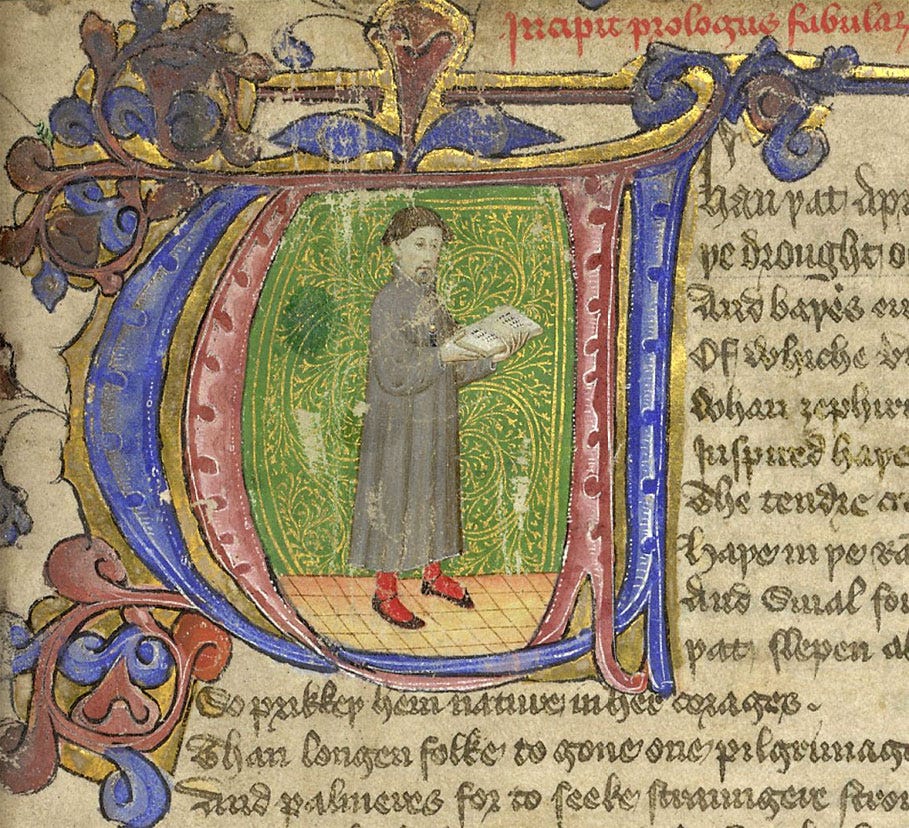 Incipit prologus fabular
Whan þat Apr
þe drought o
And baþes
Of whiche
Whan zephir
Inspired haþe
The tendre
haþe in þe Ra
And smal fo
þat slepen al
So prikkeþ hem nature in her corages .
Than longen folke to gone one pilgrimage
And palmeres for to seeke straungere stron